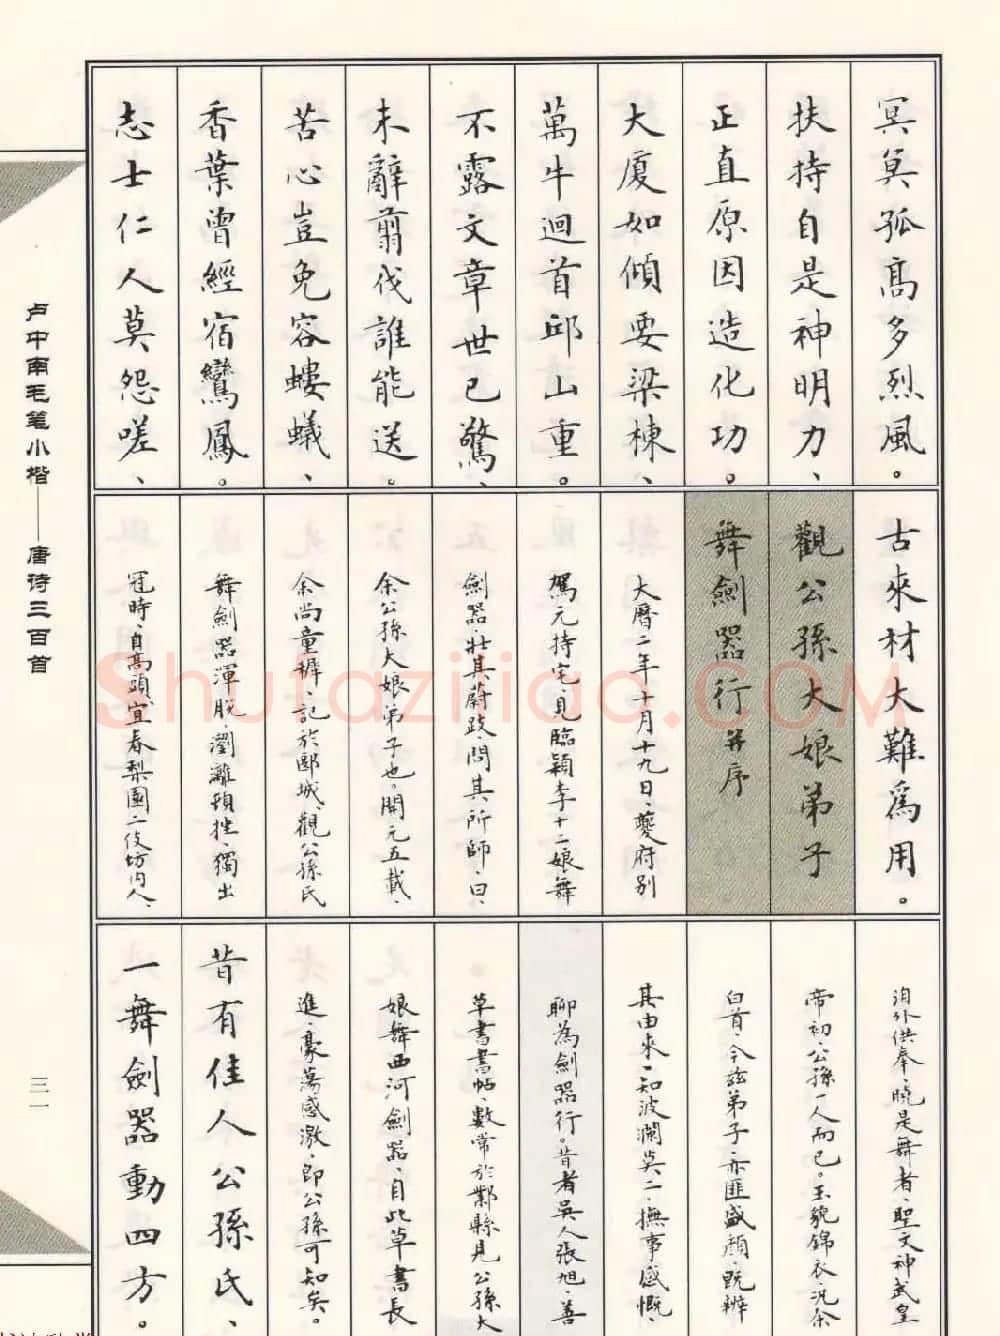 冥冥孤高多烈風。
扶持自是神明力、
正直原因造化功。
大廈如傾要梁棟、
萬牛迴首邱山重。
不露文章世已驚、
未辭翦伐誰能送。
苦心豈免容螻蟻、
香葉曾經宿鸞鳳。
志士仁人莫怨嗟、
古來材大難爲用。
觀公孫大娘弟子
舞劍器行并序
大曆二年十月十九日、夔府别
駕元持宅、見臨潁李十二娘舞
劍器、壯其蔚跂、問其所師、曰、
余公孫大娘弟子也。開元五載、
余尚童穉、記於郾城、觀公孫氏
舞劍器渾脫、瀏灕頓挫、獨出
冠時、自高頭、宜春梨園二伎坊内人、
洎外供奉、曉是舞者、聖文神武皇
帝初、公孫一人而已。玉貌錦衣、況余
白首、今兹弟子、亦匪盛顔、既辨
其由來、知波瀾莫二、撫事感慨、
聊為劍器行。昔者吳人張旭、善
草書書帖、數常於鄴縣見公孫大
娘舞西河劍器、自此草書長
進、豪蕩感激、即公孫可知矣。
昔有佳人公孫氏、
一舞劍器動四方。
卢中南毛笔小楷——唐诗三百首
三一
Shufaziliao.COM